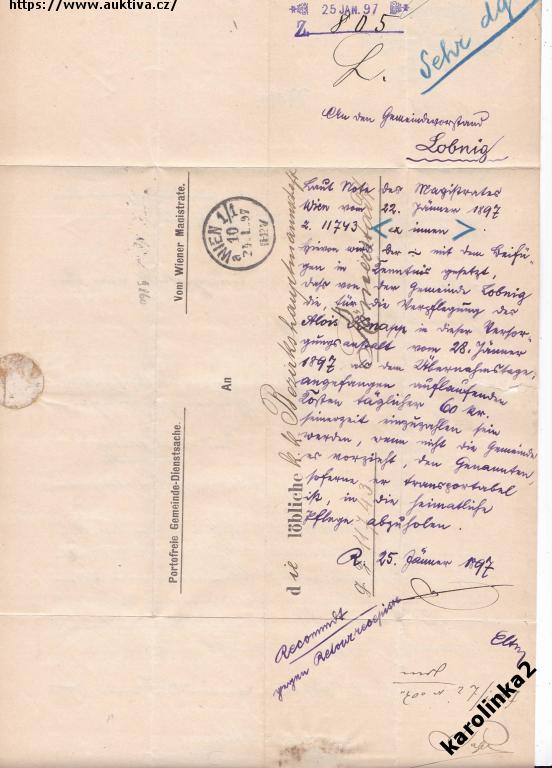 https://www.auktiva.cz/
25 JAN. 97
Z. 805
L.
Sehr
An den Gemeindevorstand
Lobnig
Laut Note des Magistrates
Wien vom 22. Jänner 1897
Z. 11743 < a innen > .
hievon wird der mit dem Beifü-
gen in Kenntnis gesetzt,
dass von der Gemeinde Lobnig
die für die Verpflegung des
Alois in dieser Versor-
gungsanstalt vom 28. Jänner
1897 als dem Übernahmstage,
angefangen auflaufenden
Kosten täglicher 60 kr.
seinerzeit einzuzahlen sein
werden, wenn nicht die Gemeinde
es vorzieht, den Genannten,
soferne er transportabel
ist, in die heimatliche
Pflege abzuholen.
R. 25. Jänner 1897
Recommdt
gegen Retourrecepisse
Vom Wiener Magistrate.
Portofreie Gemeinde-Dienstsache.
WIEN 1/1
10
97
An
die löbliche k. k. Bezirkshauptmannschaft
Römerstadt
11743
karolinka2